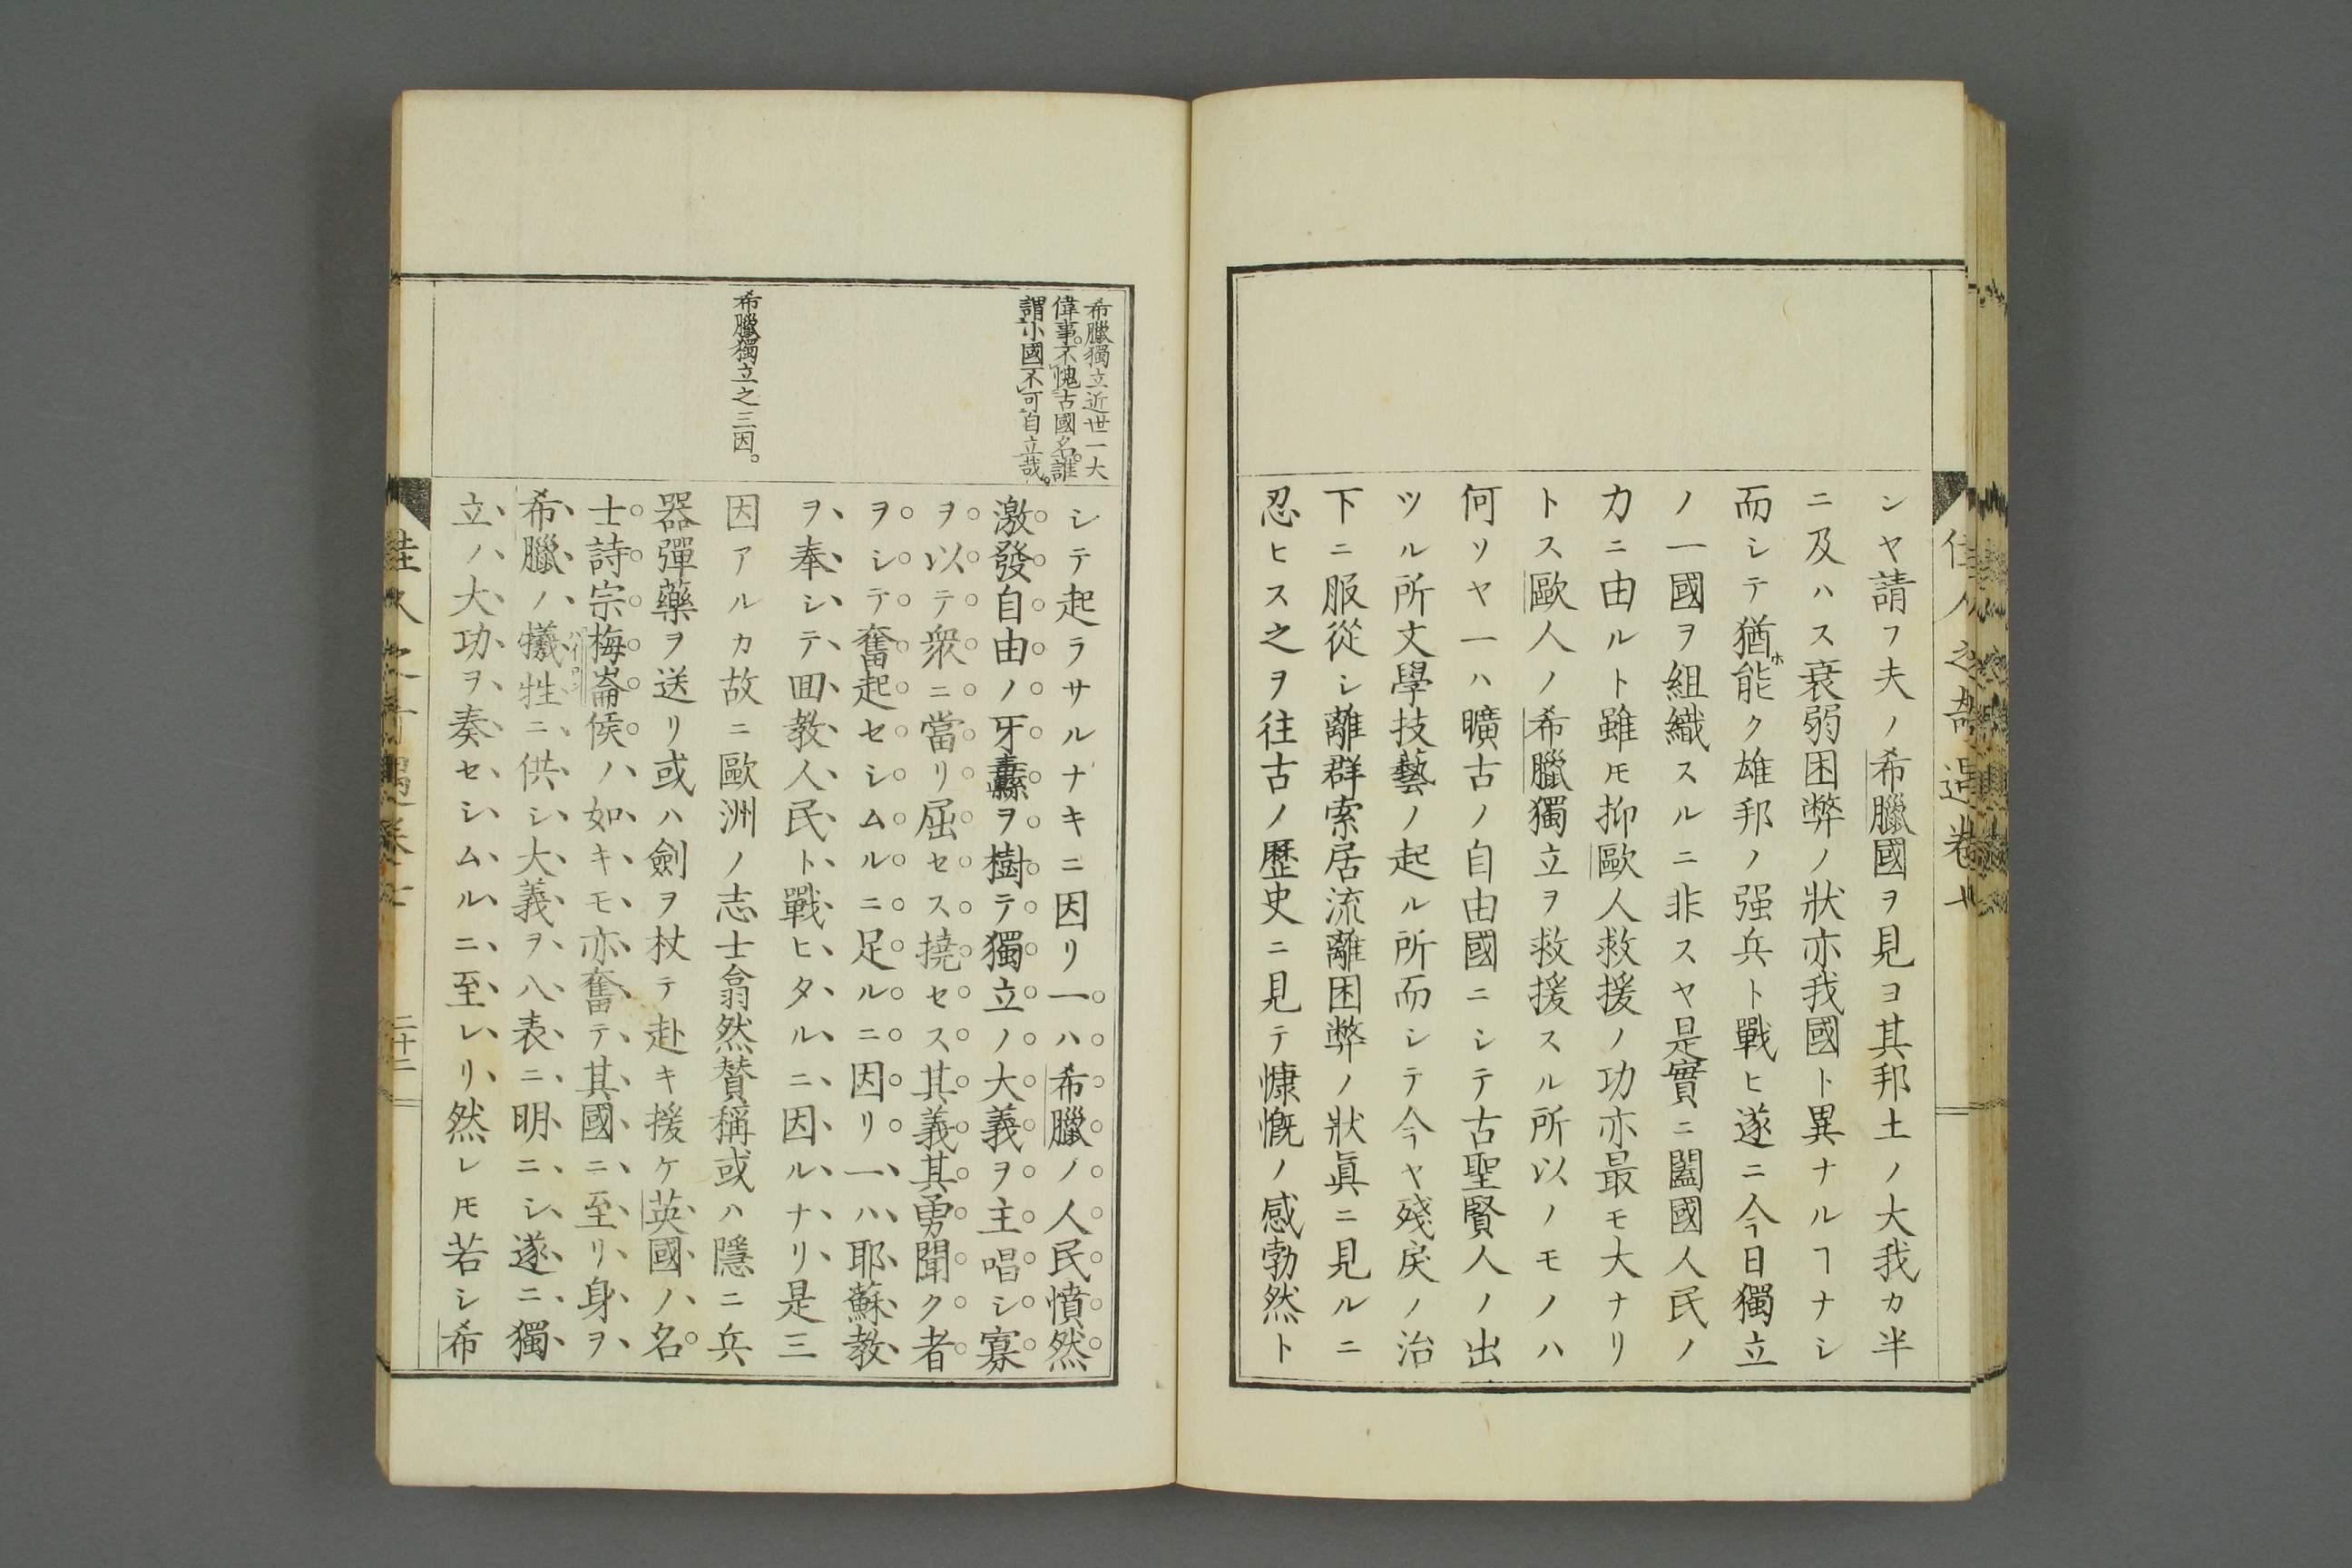 シヤ請フ夫ノ希臘國ヲ見ヨ其邦土ノ大我カ半
ニ及ハス衰弱困弊ノ狀亦我國ト異ナルヿナシ
而シテ猶ホ能ク雄邦ノ强兵ト戰ヒ遂ニ今日獨立
ノ一國ヲ組織スルニ非スヤ是實ニ闔國人民ノ
力ニ由ルト雖モ抑歐人救援ノ功亦最モ大ナリ
トス歐人ノ希臘獨立ヲ救援スル所以ノモノハ
何ソヤ一ハ曠古ノ自由國ニシテ古聖賢人ノ出
ツル所文學技藝ノ起ル所而シテ今ヤ殘戾ノ治
下ニ服從シ離群索居流離困弊ノ狀眞ニ見ルニ
忍ヒス之ヲ往古ノ歷史ニ見テ慷慨ノ感勃然ト
希臘獨立近世一大
偉事。不愧古國名。誰
謂小國不可自立哉。
シテ起ラサルナキニ因リ一ハ希臘ノ人民憤然
激發自由ノ牙纛ヲ樹テ獨立ノ大義ヲ主唱シ寡
ヲ以テ衆ニ當リ屈セス撓セス其義其勇聞ク者
ヲシテ奮起セシムルニ足ルニ因リ一ハ耶蘇教
ヲ奉シテ回教人民ト戰ヒタルニ因ルナリ是三
希臘獨立之三因。
因アルカ故ニ歐洲ノ志士翕然贊稱或ハ隱ニ兵
器彈藥ヲ送リ或ハ劍ヲ杖テ赴キ援ケ英國ノ名
士詩宗梅崙侯ノ如キモ亦奮テ其國ニ至リ身ヲ
希臘ノ犧牲ニ供シ大義ヲ八表ニ明ニシ遂ニ獨
立ノ大功ヲ奏セシムルニ至レリ然レ𪜈若シ希
二十二